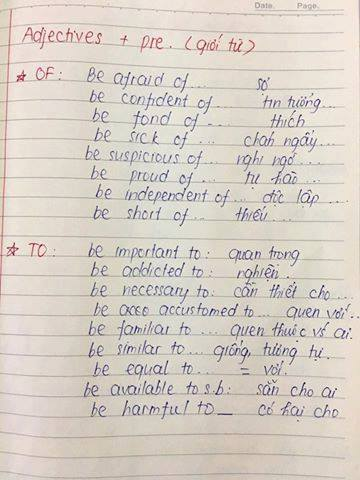 Date.   Page.
Adjectives + pre. (giới từ)
☆ OF: Be afraid of... sợ
be confident of ... tin tưởng...
be fond of ... thích
be sick of ... chán ngấy...
be suspicious of ... nghi ngờ...
be proud of ... tự hào...
be independent of ... độc lập ...
be short of ... thiếu ...
☆ TO: be important to: quan trọng
be addicted to: nghiện.
be necessary to: cần thiết cho ...
be accustomed to... quen với...
be familiar to ... quen thuộc vs ai.
be similar to ... giống, tương tự.
be equal to... = với.
be available to s.b: sẵn cho ai.
be harmful to_ có hại cho